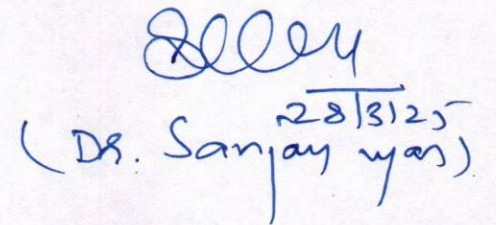 28/3/25
(Dr. Sanjay Vyas)